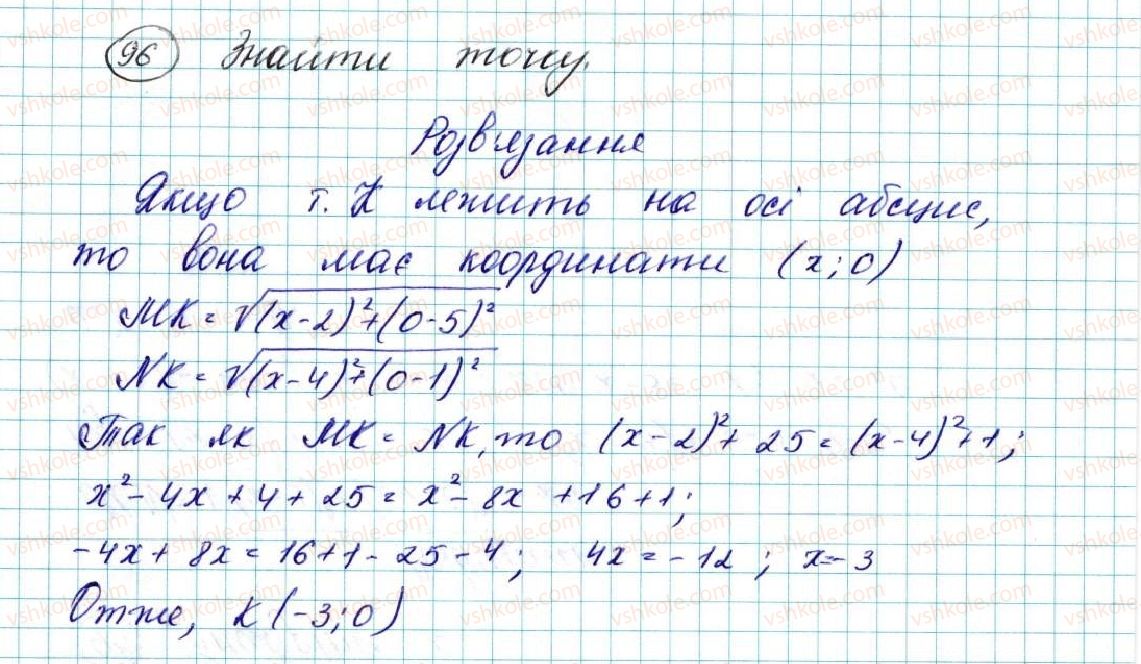 96 Знайти точку.
Розв'язання
Якщо т. K лежить на осі абсцис,
то вона має координати (x; 0)
MK = √(x-2)²+(0-5)²
NK = √(x-4)²+(0-1)²
Так як MK = NK, то (x-2)²+25=(x-4)²+1;
x²-4x+4+25=x²-8x+16+1;
-4x+8x=16+1-25-4; 4x=-12; x=-3
Отже, K(-3;0)
vshkole.com